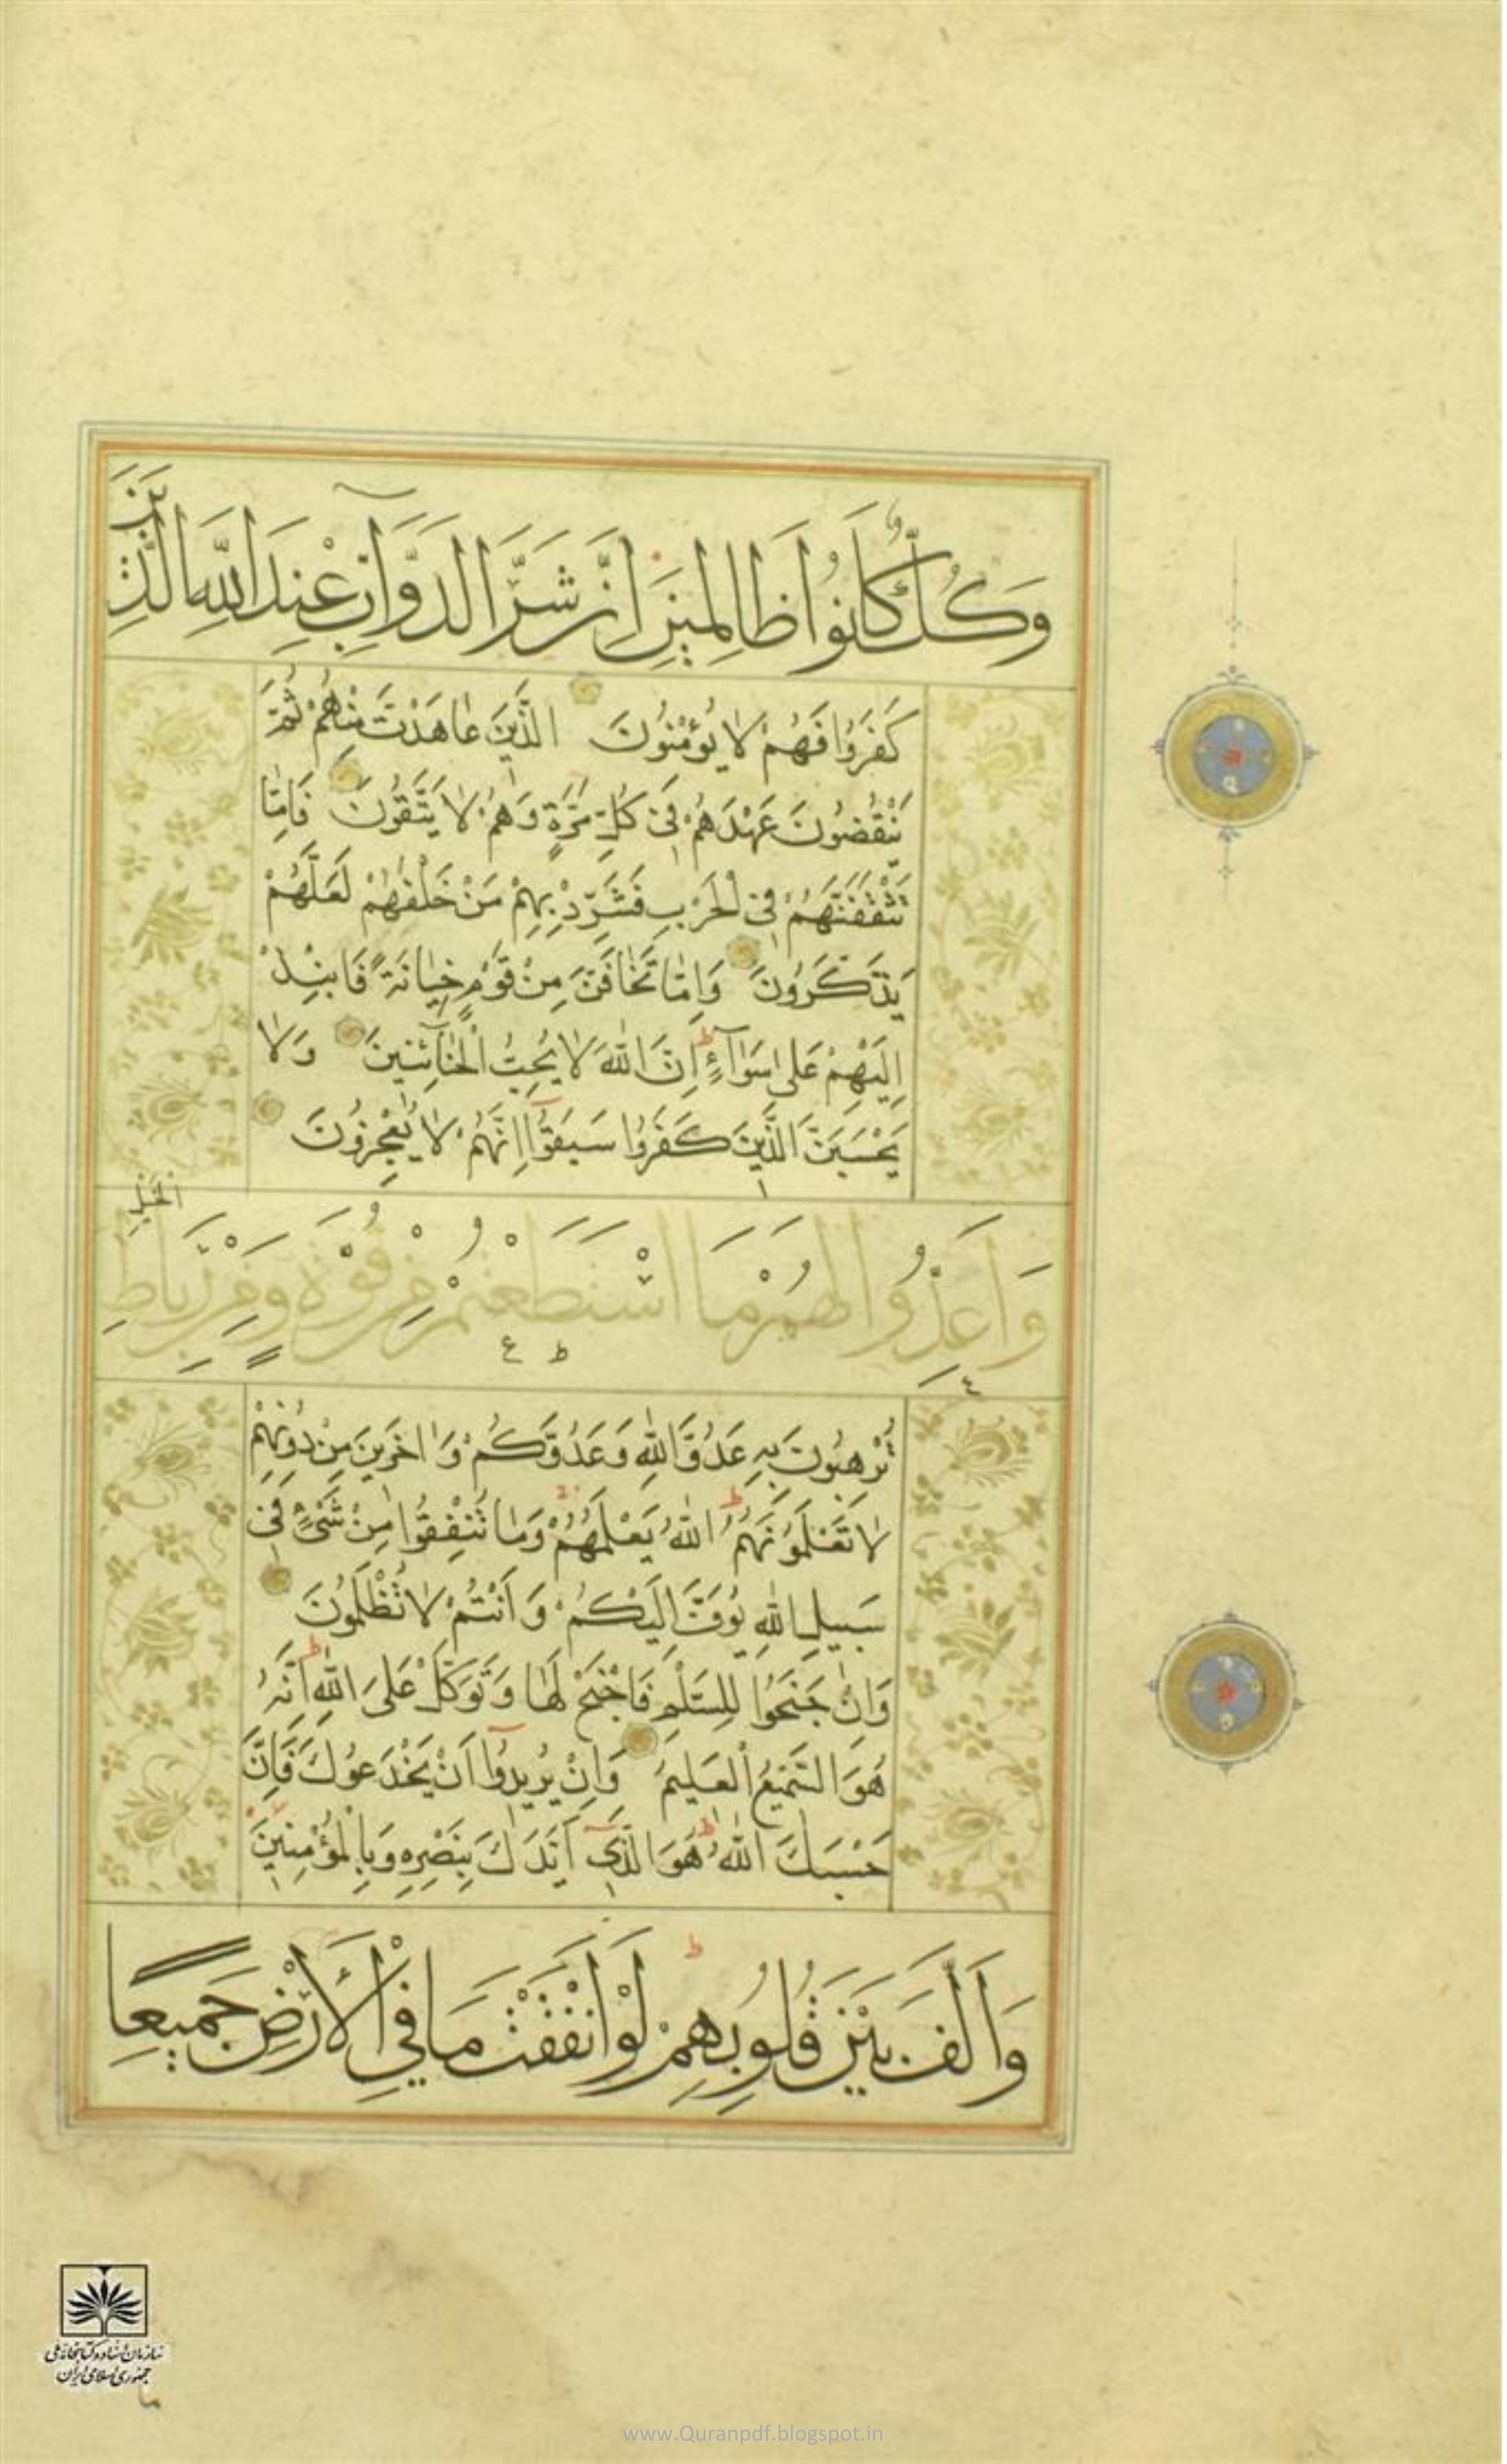 وَكُلٌّ كَانُوا ظَالِمِينَ اِنَّ شَرَّ الدَّوَآبِّ عِنْدَ اللهِ الَّذِينَ
كَفَرُوا فَهُمْ لَا يُؤْمِنُونَ الَّذِينَ عَاهَدْتَ مِنْهُمْ ثُمَّ
يَنْقُضُونَ عَهْدَهُمْ فِى كُلِّ مَرَّةٍ وَهُمْ لَا يَتَّقُونَ فَاِمَّا
تَثْقَفَنَّهُمْ فِى الْحَرْبِ فَشَرِّدْ بِهِمْ مَنْ خَلْفَهُمْ لَعَلَّهُمْ
يَذَّكَّرُونَ وَاِمَّا تَخَافَنَّ مِنْ قَوْمٍ خِيَانَةً فَانْبِذْ
اِلَيْهِمْ عَلَى سَوَآءٍ ط اِنَّ اللهَ لَا يُحِبُّ الْخَآئِنِينَ وَلَا
يَحْسَبَنَّ الَّذِينَ كَفَرُوا سَبَقُوا اِنَّهُمْ لَا يُعْجِزُونَ
وَاَعِدُّوا لَهُمْ مَا اسْتَطَعْتُمْ مِنْ قُوَّةٍ وَمِنْ رِبَاطِ الْخَيْلِ
تُرْهِبُونَ بِهِ عَدُوَّ اللهِ وَعَدُوَّكُمْ وَاٰخَرِينَ مِنْ دُونِهِمْ
لَا تَعْلَمُونَهُمُ ط اللهُ يَعْلَمُهُمْ وَمَا تُنْفِقُوا مِنْ شَىْءٍ فِى
سَبِيلِ اللهِ يُوَفَّ اِلَيْكُمْ وَاَنْتُمْ لَا تُظْلَمُونَ
وَاِنْ جَنَحُوا لِلسَّلْمِ فَاجْنَحْ لَهَا وَتَوَكَّلْ عَلَى اللهِ ط اِنَّهُ
هُوَ السَّمِيعُ الْعَلِيمُ وَاِنْ يُرِيدُوا اَنْ يَخْدَعُوكَ فَاِنَّ
حَسْبَكَ اللهُ ط هُوَ الَّذِى اَيَّدَكَ بِنَصْرِهِ وَبِالْمُؤْمِنِينَ
وَاَلَّفَ بَيْنَ قُلُوبِهِمْ ط لَوْ اَنْفَقْتَ مَا فِى الْاَرْضِ جَمِيعًا
سازمان اسناد و کتابخانه ملی
جمهوری اسلامی ایران
ما
www.Quranpdf.blogspot.in